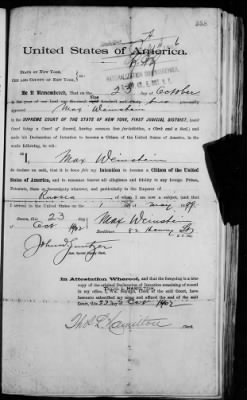 United States of America.
STATE OF NEW YORK,
CITY AND COUNTY OF NEW YORK,
Be it Remembered, That on the 23 day of October
in the year of our Lord one thousand hundred and two personally
appeared Max Weinstein
in the SUPREME COURT OF THE STATE OF NEW YORK, FIRST JUDICIAL DISTRICT, (said
Court being a Court of Record, having common law jurisdiction, a Clerk and a Seal,) and
made his Declaration of Intention to become a Citizen of the United States of America, in the
words following, to wit:
"I, Max Weinstein
do declare on oath, that it is bona fide my Intention to become a Citizen of the United
States of America, and to renounce forever all allegiance and fidelity to any foreign Prince,
Potentate, State or Sovereignty whatever, and particularly to the Emperor of
Russia of whom I am now a subject, and that
I arrived in the United States on the 1 day May 89
Sworn, this 23 Max Weinstein
day of Oct 1902 Residence 82 Henry St
In Attestation Whereof, and that the foregoing is a true
copy of the original Declaration of Intention remaining of record
in my office, I, Clerk of the said Court, have
hereunto subscribed my name and affixed the seal of the said
Court, this Oct 1902
Thos L Hamilton
Clerk.